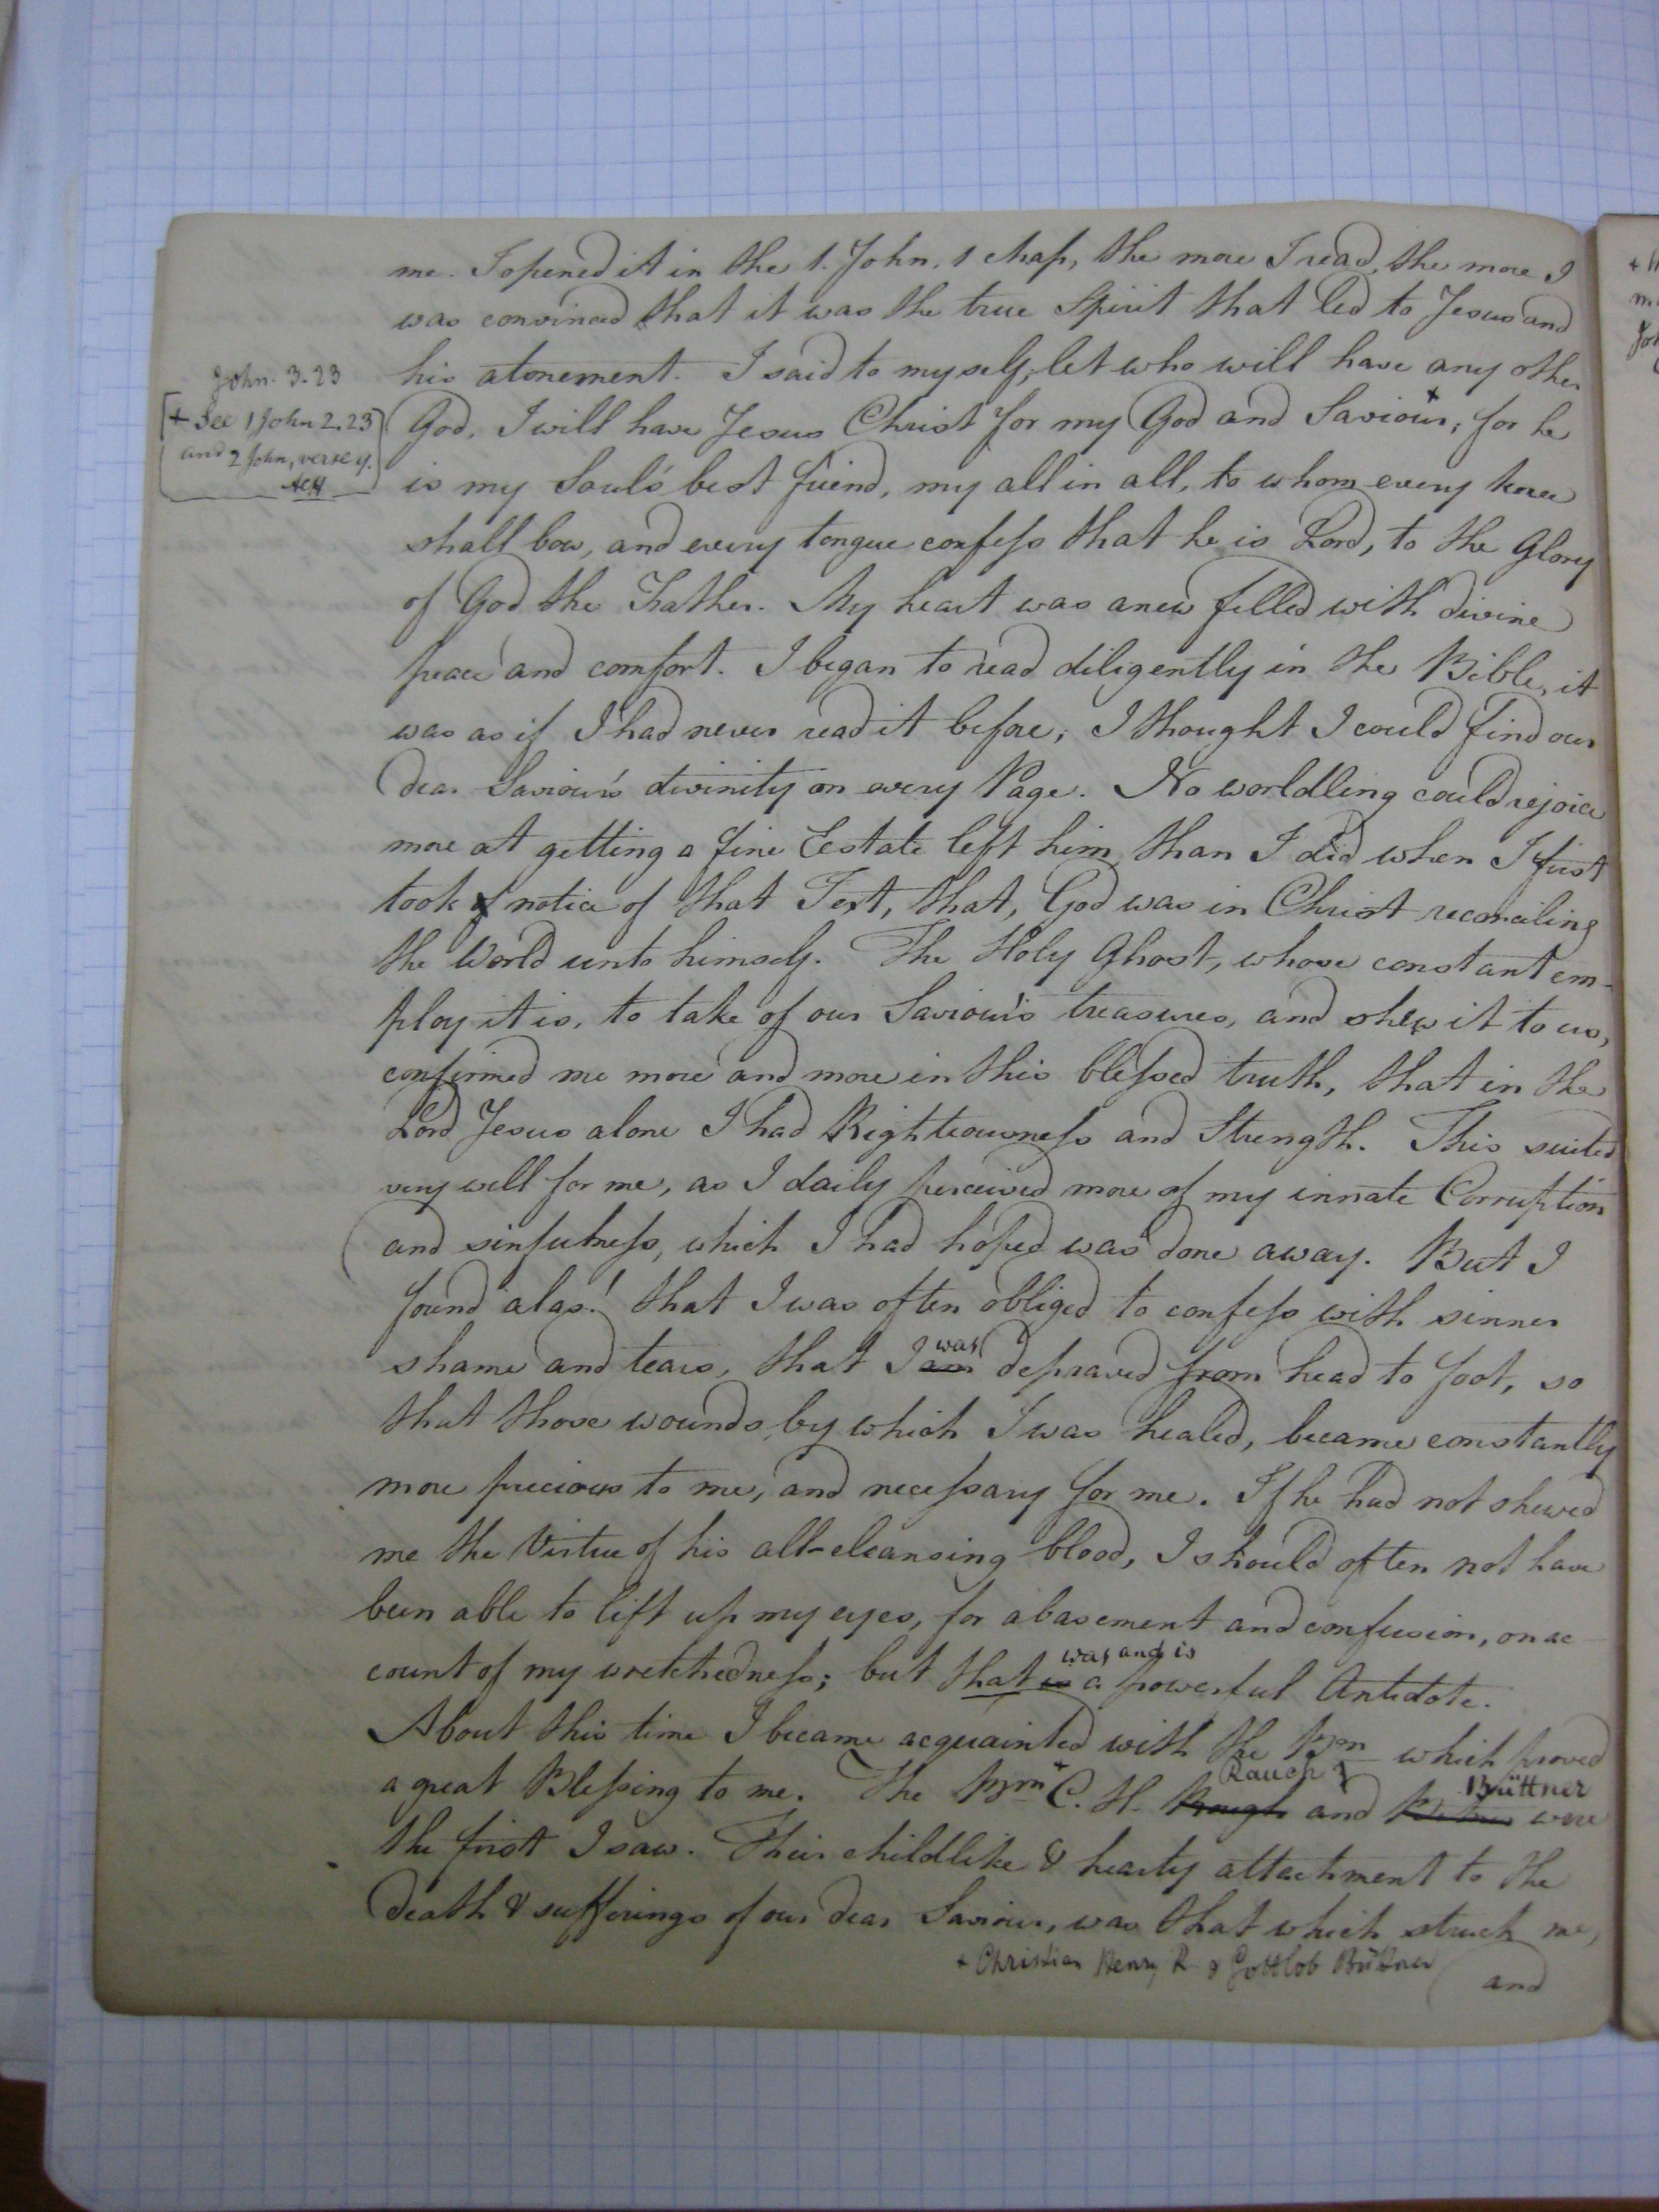 me. I opened it in the 1. John. 1 chap, the more I read, the more I
was convinced that it was the true Spirit that led to Jesus and
his atonement. I said to myself, let who will have any other
John. 3.23
+ See 1 John 2.23
and 2 John, verse 9.
ACH
God, I will have Jesus Christ for my God and Saviour+, for he
is my Soul's best friend, my all in all, to whom every knee
shall bow, and every tongue confess that he is Lord, to the Glory
of God the Father. My heart was anew filled with divine
peace and comfort. I began to read diligently in the Bible, it
was as if I had never read it before; I thought I could find our
dear Saviour's divinity on every Page. No worldling could rejoice
more at getting a fine Estate left him, than I did when I first
took notice of that Text, that, God was in Christ reconciling
the World unto himself. The Holy Ghost, whose constant em-
ploy it is, to take of our Saviour's treasures, and shew it to us,
confirmed me more and more in this blessed truth, that in the
Lord Jesus alone I had Righteousness and Strength. This suited
very well for me, as I daily perceived more of my innate Corruption
and sinfulness, which I had hoped was done away. But I
found alas! that I was often obliged to confess with sinner
shame and tears, that I am was depraved from head to foot, so
that those wounds by which I was healed, became constantly
more precious to me, and necessary for me. If he had not shewed
me the Virtue of his all-cleansing blood, I should often not have
been able to lift up my eyes, for abasement and confusion, on ac
count of my wretchedness; but that is was and is a powerful Antidote.
About this time I became acquainted with the Brn which proved
a great Blessing to me. The Brn+ C. H. Rough Rauch and Büttner were
the first I saw. Their childlike & hearty attachment to the
death & sufferings of our dear Saviour, was that which struck me,
+ Christian Henry R. & Gottlob Büttner
and